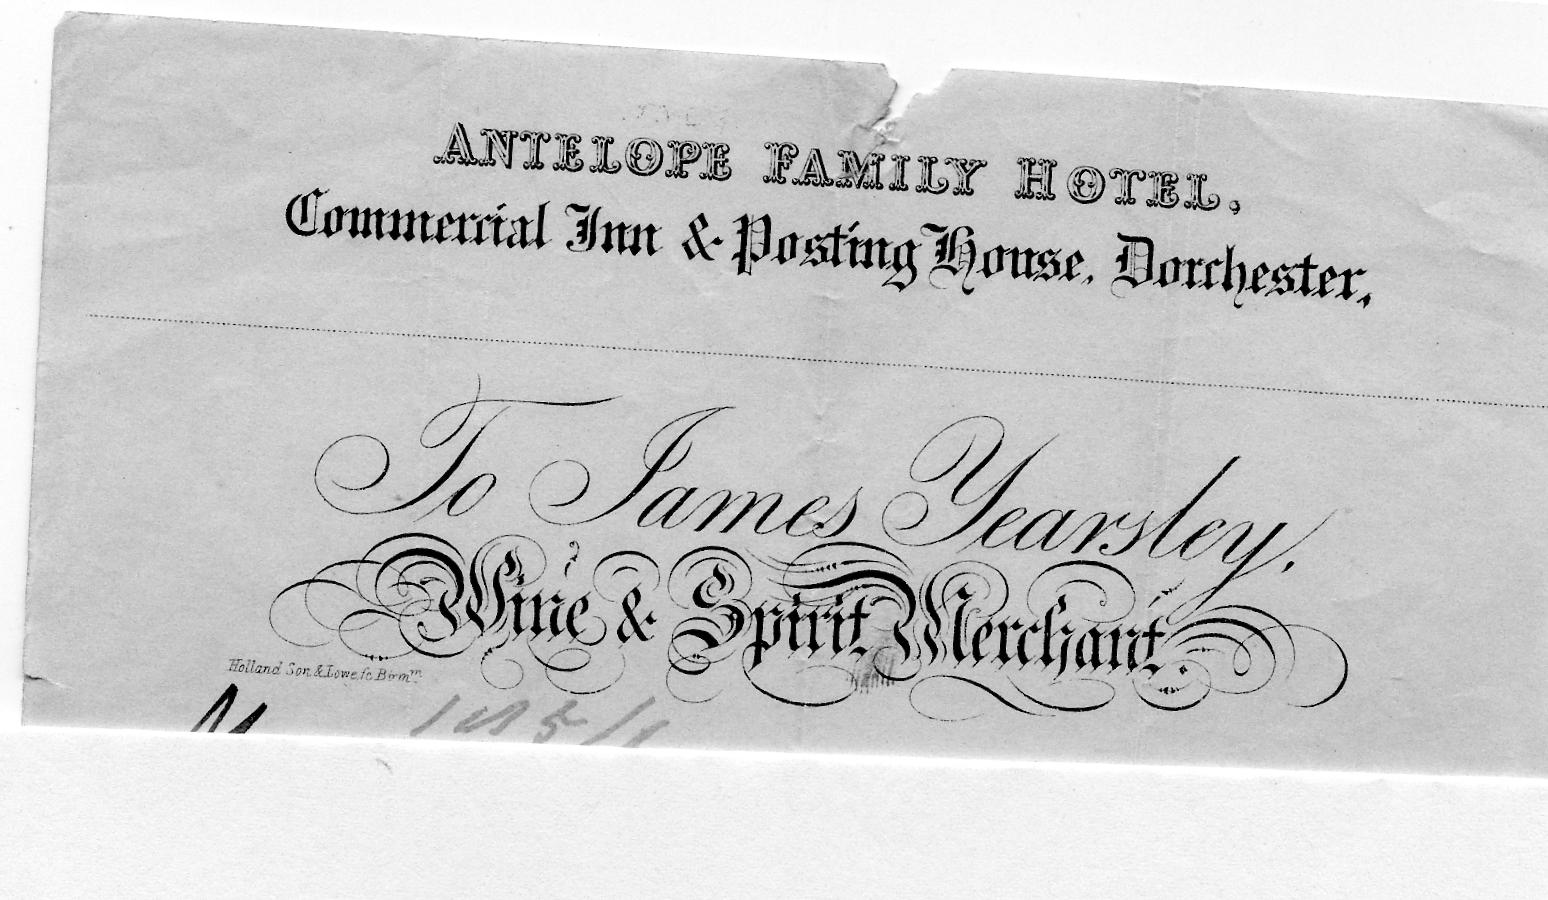 ANTELOPE FAMILY HOTEL.
Commercial Inn & Posting House, Dorchester,
To James Yearsley.
Wine & Spirit Merchant.
Holland Son & Lowe, fc Birmm